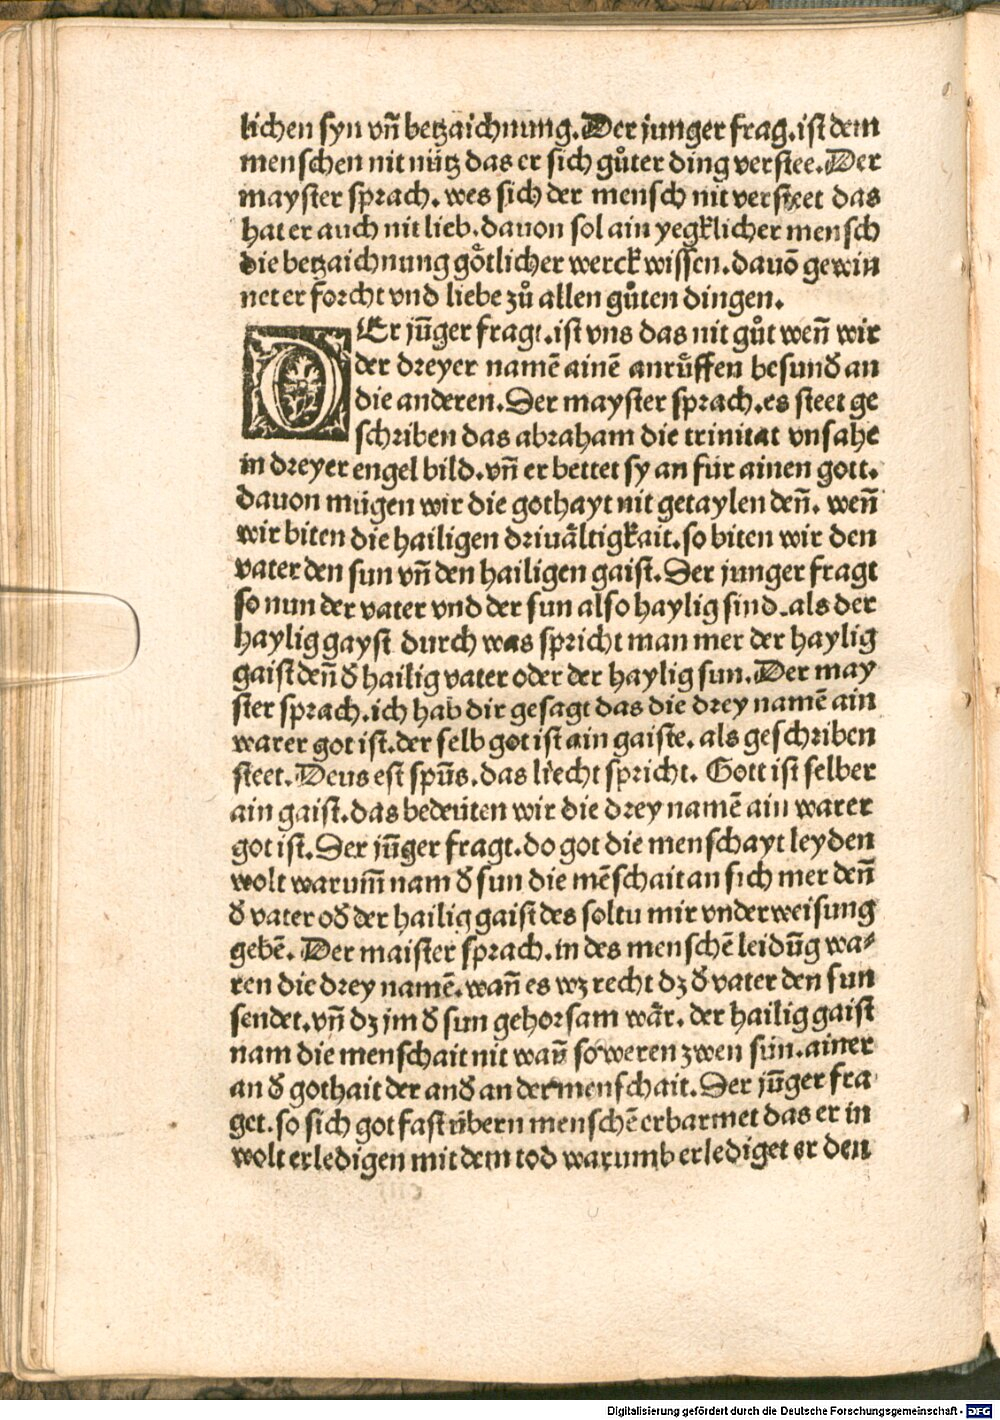 lichen syn vnd̄ betzaichnung. Der junger frag. ist dem
menschen nit nütz das er sich gůter ding verstee. Der
mayster sprach. wes sich der mensch nit versteet das
hat er auch nit lieb. dauon sol ain yegklicher mensch
die betzaichnung götlicher werck wissen. dauō gewin
net er forcht vnd liebe zů allen gůten dingen.
DEr jūger fragt. ist vns das nit gůt wen̄ wir
der dreyer namē ainē anrůffen besunď an
die anderen. Der mayster sprach. es steet ge
schriben das abraham die trinitat vnsahe
in dreyer engel bild. vn̄ er bettet sy an für ainen gott.
dauon mügen wir die gothayt nit getaylen den̄. wen̄
wir biten die hailigen driuältigkait. so biten wir den
vater den sun vn̄ den hailigen gaist. Der junger fragt
so nun der vater vnd der sun also haylig sind. als der
haylig gayst durch was spricht man mer der haylig
gaist den̄ ď hailig vater oder der haylig sun. Der may
ster sprach. ich hab dir gesagt das die drey namē ain
warer got ist. der selb got ist ain gaiste. als geschriben
steet. Deus est spūs. das liecht spricht. Gott ist selber
ain gaist. das bedeüten wir die drey namē ain warer
got ist. Der jūger fragt. do got die menschayt leyden
wolt warum̄ nam ď sun die mēschait an sich mer den̄
ď vater oď der hailig gaist des soltu mir vnderweisung
gebē. Der maister sprach. in des menschē leidūg wa⸗
ren die drey namē. wan̄ es wz recht dz ď vater den sun
sendet. vn̄ dz jm ď sun gehorsam wär. der hailig gaist
nam die menschait nit wan̄ so weren zwen sün. ainer
an ď gothait der anď an der menschait. Der jūger fra
get. so sich got fast übern menschē erbarmet das er in
wolt erledigen mit dem tod warumb erlediget er den
Digitalisierung gefördert durch die Deutsche Forschungsgemeinschaft - DFG